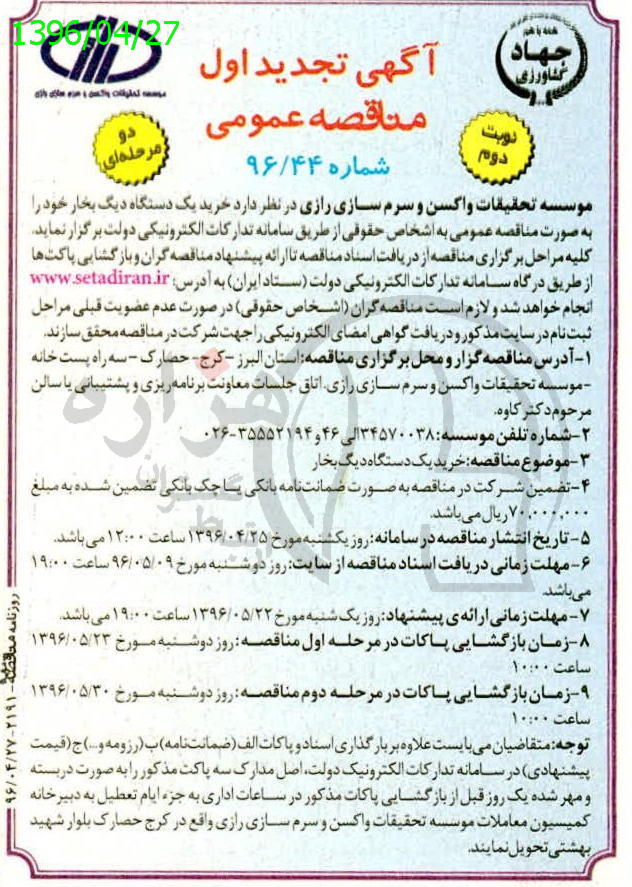 1396/04/27
همه با هم
جهاد
کشاورزی
موسسه تحقیقات واکسن و سرم سازی رازی
آگهی تجدید اول
مناقصه عمومی
شماره ۹۶/۴۴
نوبت
دوم
دو
مرحله‌ای
موسسه تحقیقات واکسن و سرم سازی رازی در نظر دارد خرید یک دستگاه دیگ بخار خود را
به صورت مناقصه عمومی به اشخاص حقوقی از طریق سامانه تدارکات الکترونیکی دولت برگزار نماید.
کلیه مراحل برگزاری مناقصه از دریافت اسناد مناقصه تا ارائه پیشنهاد مناقصه گران و بازگشایی پاکت‌ها
از طریق درگاه سامانه تدارکات الکترونیکی دولت (ستاد ایران) به آدرس: www.setadiran.ir
انجام خواهد شد و لازم است مناقصه گران (اشخاص حقوقی) در صورت عدم عضویت قبلی مراحل
ثبت نام در سایت مذکور و دریافت گواهی امضای الکترونیکی را جهت شرکت در مناقصه محقق سازند.
۱-آدرس مناقصه گزار و محل برگزاری مناقصه: استان البرز -کرج- حصارک -سه راه پست خانه
-موسسه تحقیقات واکسن و سرم سازی رازی، اتاق جلسات معاونت برنامه ریزی و پشتیبانی یا سالن
مرحوم دکتر کاوه.
۲-شماره تلفن موسسه: ۳۴۵۷۰۰۳۸ الی ۴۶ و ۳۵۵۵۲۱۹۴-۰۲۶
۳-موضوع مناقصه: خرید یک دستگاه دیگ بخار
۴-تضمین شرکت در مناقصه به صورت ضمانت نامه بانکی یا چک بانکی تضمین شده به مبلغ
۷۰,۰۰۰,۰۰۰ ریال می‌باشد.
۵-تاریخ انتشار مناقصه در سامانه: روز یکشنبه مورخ ۱۳۹۶/۰۴/۲۵ ساعت ۱۲:۰۰ می‌باشد.
۶-مهلت زمانی دریافت اسناد مناقصه از سایت: روز دوشنبه مورخ ۹۶/۰۵/۰۹ ساعت ۱۹:۰۰
می‌باشد.
۷-مهلت زمانی ارائه‌ی پیشنهاد: روز یک شنبه مورخ ۱۳۹۶/۰۵/۲۲ ساعت ۱۹:۰۰ می‌باشد.
۸-زمان بازگشایی پاکات در مرحله اول مناقصه: روز دوشنبه مورخ ۱۳۹۶/۰۵/۲۳
ساعت ۱۰:۰۰
۹-زمان بازگشایی پاکات در مرحله دوم مناقصه: روز دوشنبه مورخ ۱۳۹۶/۰۵/۳۰
ساعت ۱۰:۰۰
توجه: متقاضیان می‌بایست علاوه بر بارگذاری اسناد و پاکات الف (ضمانت‌نامه) ب (رزومه و...) ج (قیمت
پیشنهادی) در سامانه تدارکات الکترونیک دولت، اصل مدارک سه پاکت مذکور را به صورت دربسته
و مهر شده یک روز قبل از بازگشایی پاکات مذکور در ساعات اداری به جزء ایام تعطیل به دبیرخانه
کمیسیون معاملات موسسه تحقیقات واکسن و سرم سازی رازی واقع در کرج حصارک بلوار شهید
بهشتی تحویل نمایند.
روزنامه مناقصه - ۲۱۹۱ - ۹۶/۰۴/۲۷
هزاره